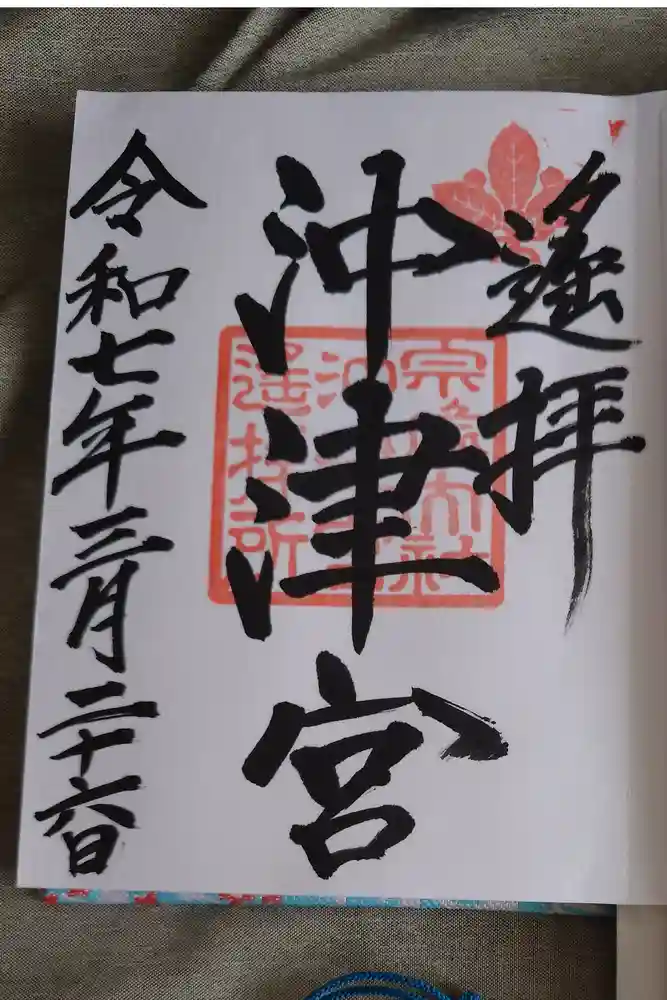 遙拝
沖津宮
令和七年三月二十六日
宗像大社
沖津宮
遥拝所